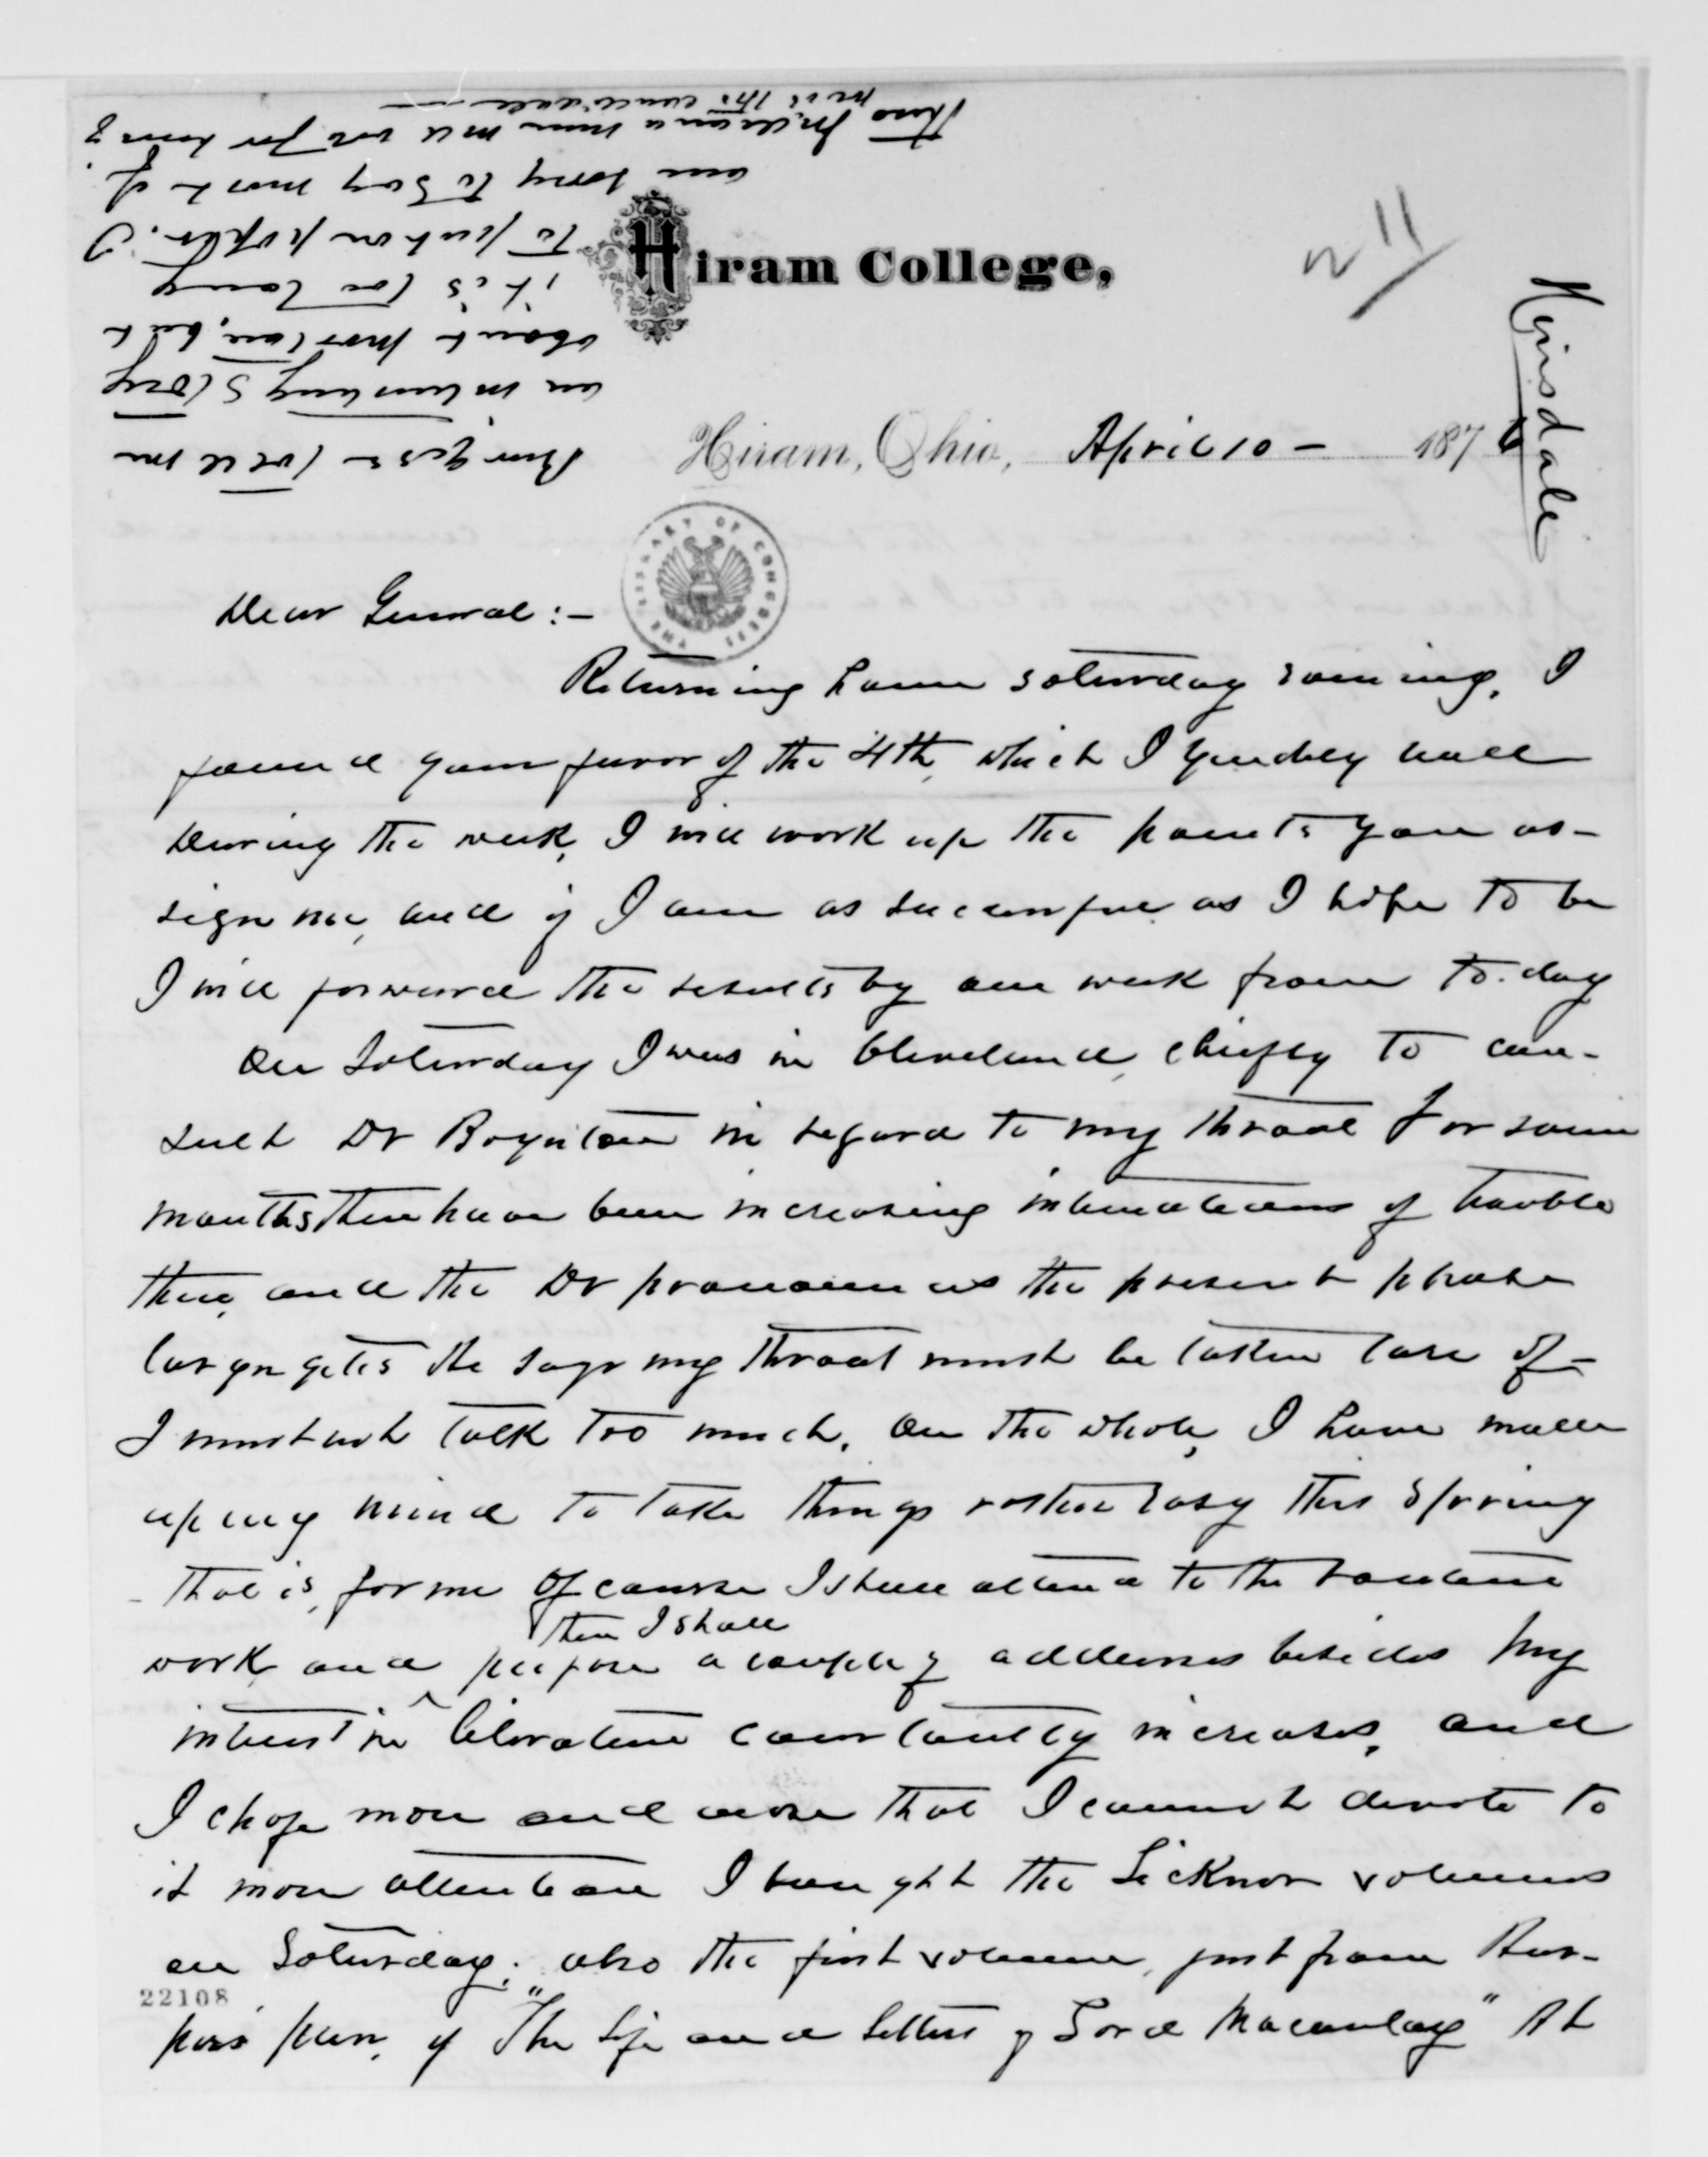 Hiram College,
Hiram, Ohio, April 10 – 1876
Hinsdale
Dear General :–
Returning home Saturday evening, I
found your favor of the 4th, which I
During the week, I will work up the points you as-
sign me, and if I am as successful as I hope to be
I will forward the results by one week from to-day
On Saturday I was in Cleveland, chiefly to con-
sult Dr Boynton in regard to my throat For some
months there have been increasing intimations of trouble
there, and the Dr pronounces the present phase
laryngitis He says my throat must be taken care of –
I must not talk too much. On the whole, I have made
up my mind to take things rather easy this Spring
– That is, for me Of course I shall attend to the routine
then I shall
work, and prepare a couple of addresses besides My
interest in literature constantly increases, and
I chafe more and more that I cannot devote to
it more attention I bought the Ticknor volumes
on Saturday; also the first volume, just from Har-
pers' press, of "The Life and Letters of Lord Macaulay" At
22108
THE LIBRARY OF CONGRESS
Burgess told me
an interesting story
about Morton, but
it is too long
to put on paper. I
am sorry to say most of